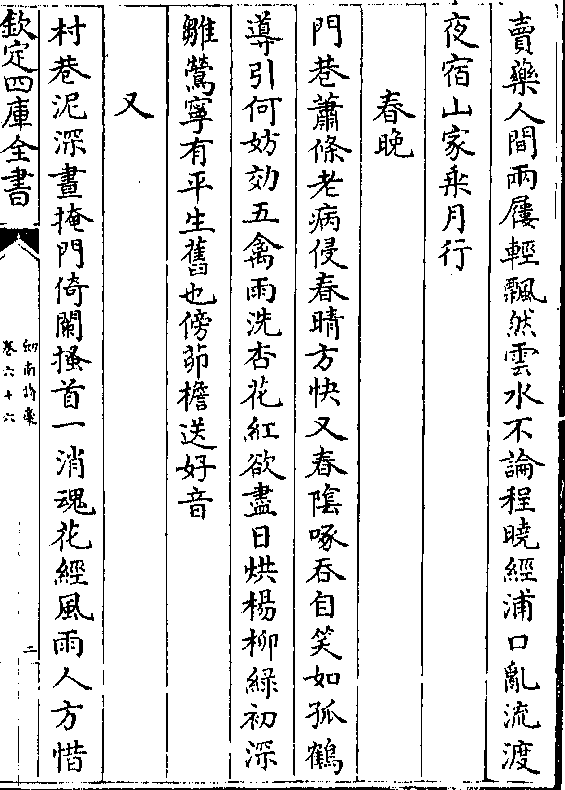 賣藥人間兩屨輕飄然雲水不論程曉經浦口亂流渡
夜宿山家乘月行
春晚
門巷蕭條老病侵春晴方快又春陰啄吞自笑如孤鶴
導引何妨効五禽雨洗杏花紅欲盡日烘楊柳綠初深
雛鶯寧有平生舊也傍茆檐送好音
又
村巷泥深晝掩門倚闌搔首一消魂花經風雨人方惜
欽定四庫全書
劒南詩藁
卷六十六
二